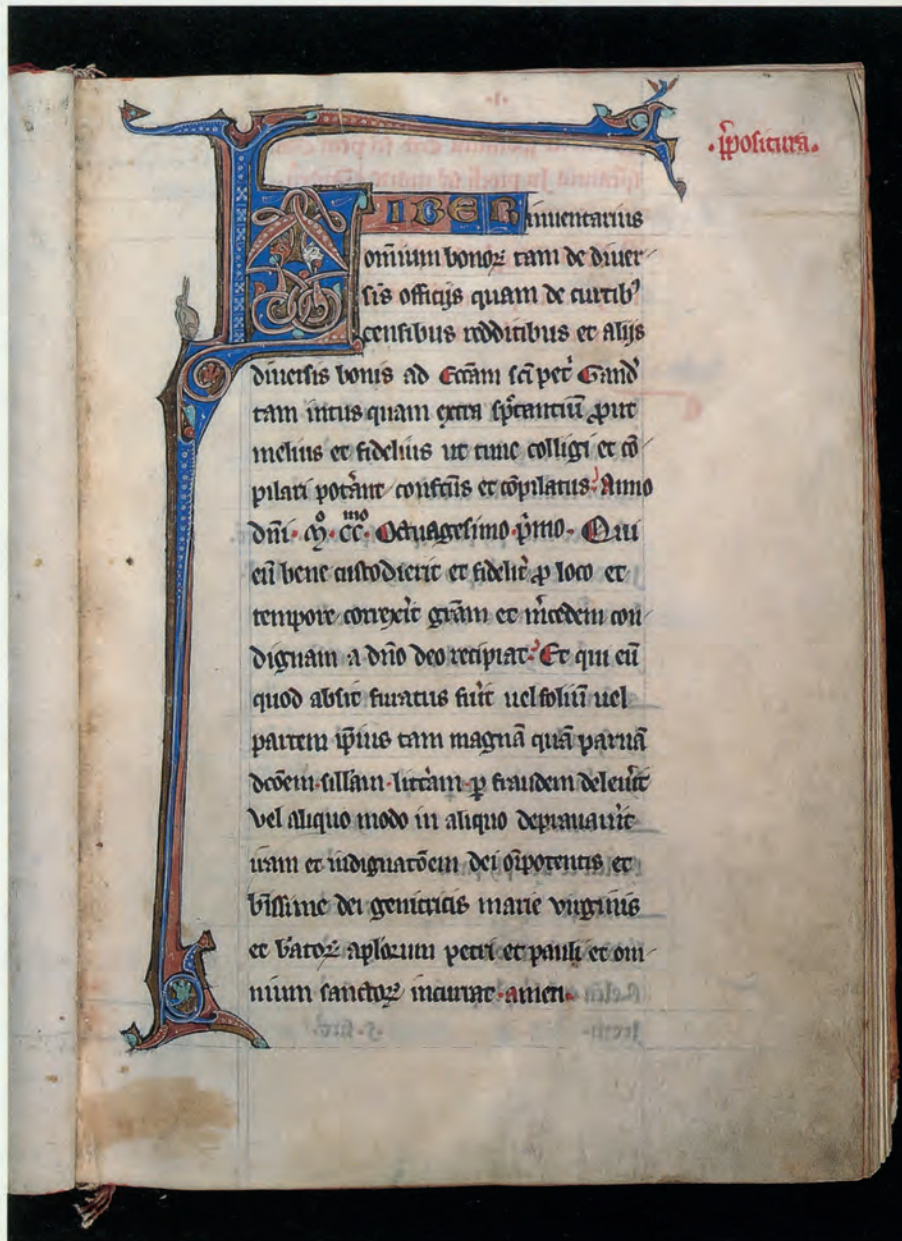 ·p̄positura.
LIBER inuentarius
om̄ium bonoꝝ tam de diuer-
sis officijs quam de curtibꝰ
censibus redditibus et alijs
diuersis bonis ad Ecc̄am sc̄i pet̓ Gand̓
tam intus quam extra sp̄tantiū ꝓut
melius et fidelius ut tunc colligi et cō-
pilari pot̓ant confc̄us et cōpilatus. Anno
dn̄i. Mº. CCmo. Octuagesimo p̓mo. Qui
eū bene custodierit et fidelit̓ ꝓ loco et
tempore correx̓it gr̄am et m̓cedem con-
dignam a dn̄o deo recipiat. Et qui eū
quod absit furatus fu̓it uel foliū uel
partem ip̄ius tam magnā quā paruā
dcōem. sillam. litt̓am. ꝑ fraudem deleu̓it
vel aliquo modo in aliquo deprauau̓it
iram et indignatōem dei oīpotentis et
b̄issime dei genitricis marie virginis
et b̄atoꝝ ap̄lorum petri et pauli et om-
nium sanctoꝝ incurrat. amen.